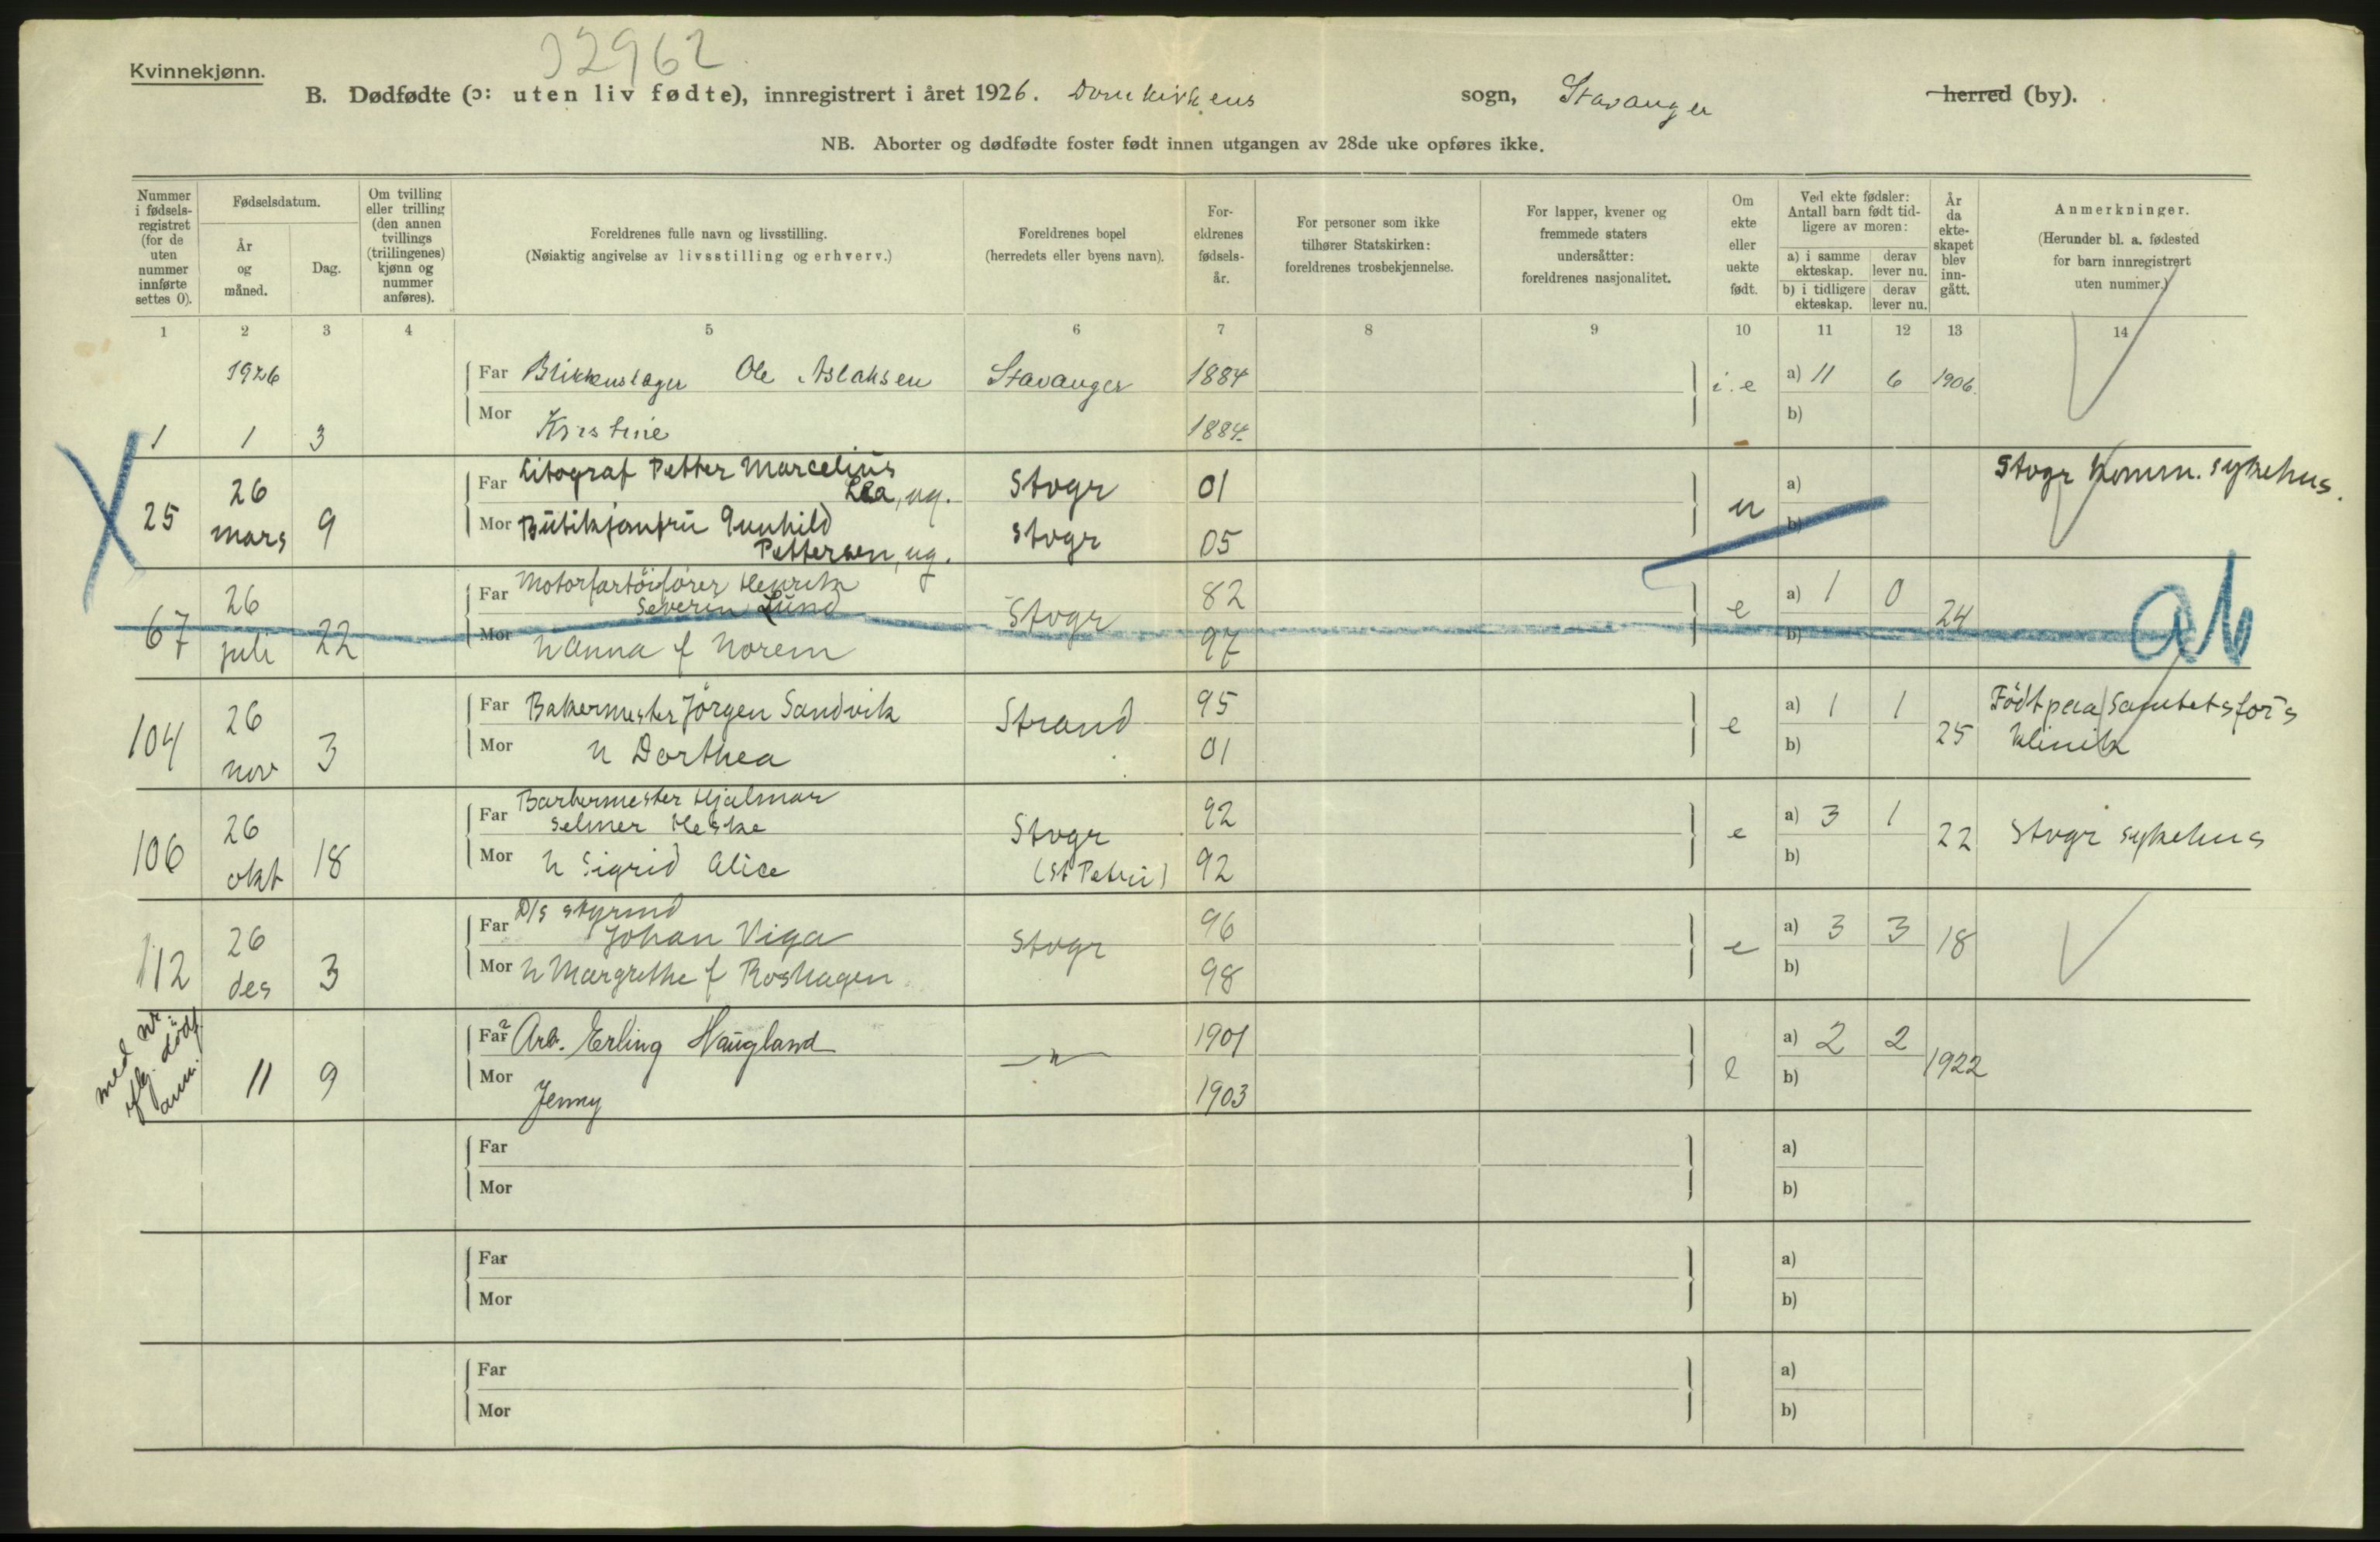 32962
Kvinnekjønn.
B. Dødfødte (ɔ: uten liv fødte), innregistrert i året 1926. Domkirkens sogn, Stavanger herred (by).
NB. Aborter og dødfødte foster født innen utgangen av 28de uke opføres ikke.
Nummer i fødsels-registret (for de uten nummer innførte settes 0).
Fødselsdatum.
År og måned.
Dag.
Om tvilling eller trilling (den annen tvillings (trillingenes) kjønn og nummer anføres).
Foreldrenes fulle navn og livsstilling.
(Nøiaktig angivelse av livsstilling og erhverv.)
Foreldrenes bopel
(herredets eller byens navn).
For-eldrenes fødsels-år.
For personer som ikke tilhører Statskirken: foreldrenes trosbekjennelse.
For lapper, kvener og fremmede staters undersåtter: foreldrenes nasjonalitet.
Om ekte eller uekte født.
Ved ekte fødsler: Antall barn født tid-ligere av moren:
a) i samme ekteskap. derav lever nu.
b) i tidligere ekteskap. derav lever nu.
År da ekte-skapet blev inn-gått.
Anmerkninger.
(Herunder bl. a. fødested for barn innregistrert uten nummer.)
1 2 3 4 5 6 7 8 9 10 11 12 13 14
1926 Far Blikkenslager Ole Aslaksen Stavanger 1884 i.e a) 11 6 1906.
1 1 3 Mor Kristine 1884. b)
Far Litograf Petter Marcelius
Lea, ug. Stvgr 01 a) Stvgr Komm. sykehus.
25 26 mars 9 Mor Butikjomfru Gunhild
Pettersen, ug. Stvgr 05 u b)
Far Motorfartöifører Henrik
Severin Lund Stvgr 82 e a) 1 0 24
67 26 juli 22 Mor h Anna f Norem 97 b) ab
Far Bakermester Jörgen Sandvik Strand 95 e a) 1 1 25 Födt paa Sanitetsför's
104 26 nov 3 Mor h Dorthea 01 b) klinik
Far Barbermester Hjalmar
Selmer Heske Stvgr 92 e a) 3 1 22 Stvgr sykehus
106 26 okt 18 Mor h Sigrid Alice (St Petri) 92 b)
Far D/s styrmd
Johan Viga Stvgr 96 e a) 3 3 18
112 26 des 3 Mor h Margrethe f Roshagen 98 b)
med nr.
dødf.
anm.
Far Arb. Erling Haugland — " — 1901 e a) 2 2 1922
11 9 Mor Jenny 1903 b)
Far a)
Mor b)
Far a)
Mor b)
Far a)
Mor b)